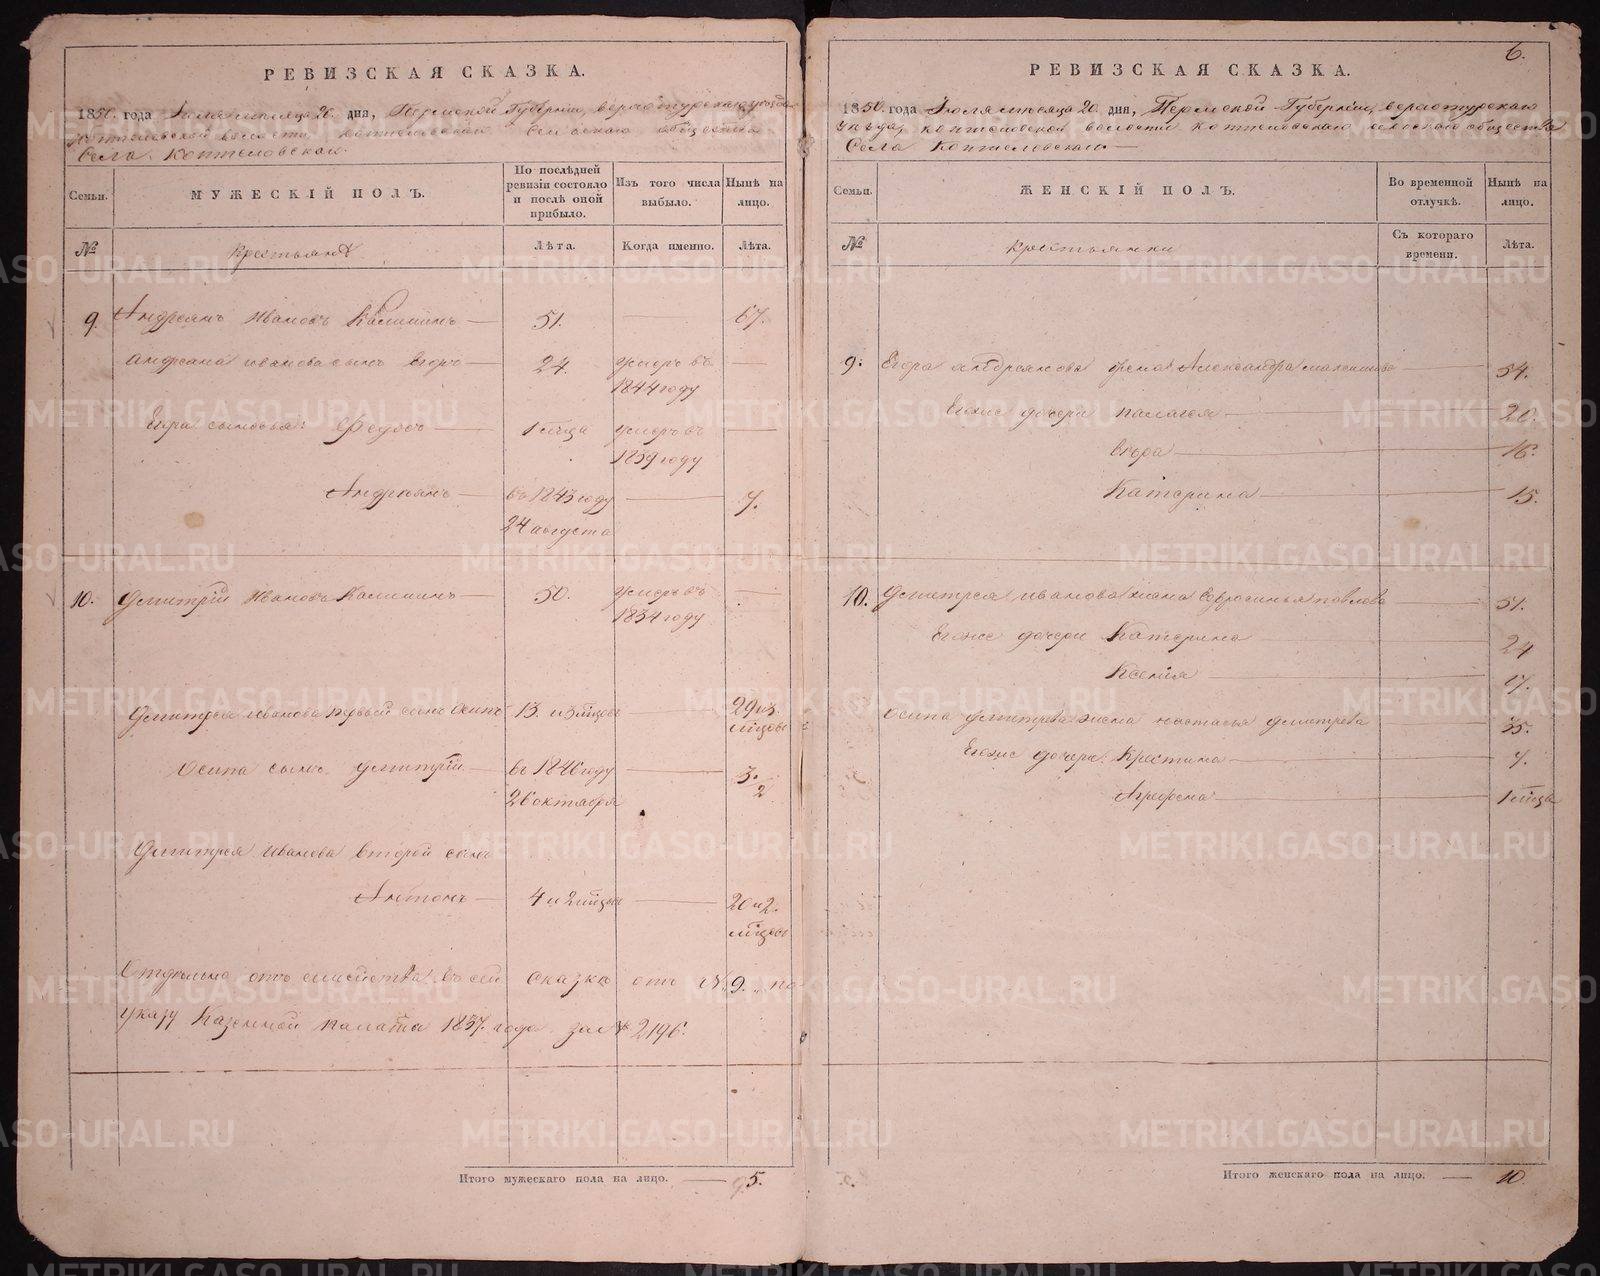 РЕВИЗСКАЯ СКАЗКА.
1850. года Июля мѣсяца 20. дня, Пермской Губерніи, верхотурскаго уѣзда
Коптеловской волости Коптеловскаго сельскаго общества
Села Коптеловскаго.
Семьи.
МУЖЕСКІЙ ПОЛЪ.
По послѣдней ревизіи состояло и послѣ оной прибыло.
Изъ того числа выбыло.
Нынѣ на лицо.
№
Крестьянѣ
Лѣта.
Когда именно.
Лѣта.
9. Андреянъ Ивановъ Калининъ — 51. — 67.
Андреяна иванова сынъ Егоръ — 24. умеръ въ 1844 году —
Егора сыновья: Федотъ — 1 мѣсца умеръ въ 1839 году —
Андреянъ — въ 1843 году 24 августа — 7.
10. Дмитрій Ивановъ Калининъ — 50. умеръ въ 1834 году —
Дмитрея Иванова первый сынъ Осипъ 13. и 3 мѣсцовъ — 29 и 3. мѣсцовъ
Осипа сынъ Дмитрій — въ 1846 году 26 октября — 3. / 2
Дмитрея Иванова второй сынъ
Антонъ — 4 и 2 мѣсцовъ — 20 и 2. мѣсцовъ
Отдѣльно отъ семейства въ сей сказкѣ отъ № 9. по
указу Казенной палаты 1837. года за № 2196.
Итого мужескаго пола на лицо. — 5.
6.
РЕВИЗСКАЯ СКАЗКА.
1850. года Июля мѣсяца 20. дня, Пермской Губерніи, верхотурскаго
уѣзда, коптеловской волости Коптеловскаго сельскаго общества
Села Коптеловскаго —
Семьи.
ЖЕНСКІЙ ПОЛЪ.
Во временной отлучкѣ.
Нынѣ на лицо.
№
Крестьянки
Съ котораго времени.
Лѣта.
9. Егора Андреянова жена Александра максимова — 54.
Егоже дочери палагея — 20.
вѣра — 16.
Катерина — 15.
10. Дмитрея иванова жена Евросинья павлова — 51.
Егоже дочери Катерина — 24
Ксенія — 17.
Осипа дмитрева жена настасья дмитрева — 35.
Егоже дочери Крестина — 7.
Агрофена — 1 мѣсца
Итого женскаго пола на лицо. — 10.
METRIKI.GASO-URAL.RU